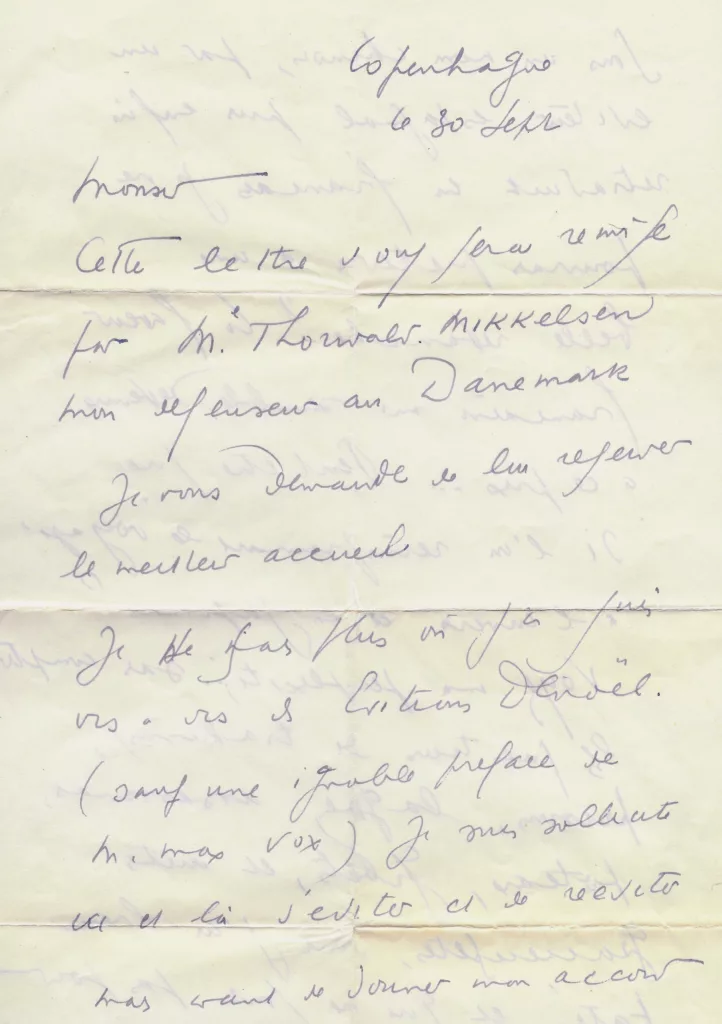 Copenhague
le 30 Sept
Monsr
Cette lettre vous sera remise
par Me Thorwald. MIKKelsen
mon defenseur au Danemark
Je vous demande de lui reserver
le meilleur accueil
Je ne sais plus où j'en suis
vis a vis des Editions Denoël.
(sauf une ignoble preface de
M. max Vox) Je suis sollicité
ici et là d'editer et de reediter
mais avant de donner mon accord